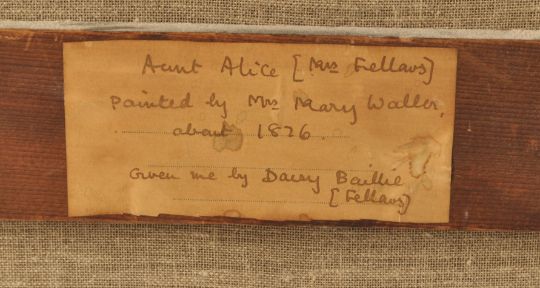 Aunt Alice [Mrs Fellows]
painted by Mrs Mary Waller,
about 1826.
Given me by Daisy Baillie
[Fellows]